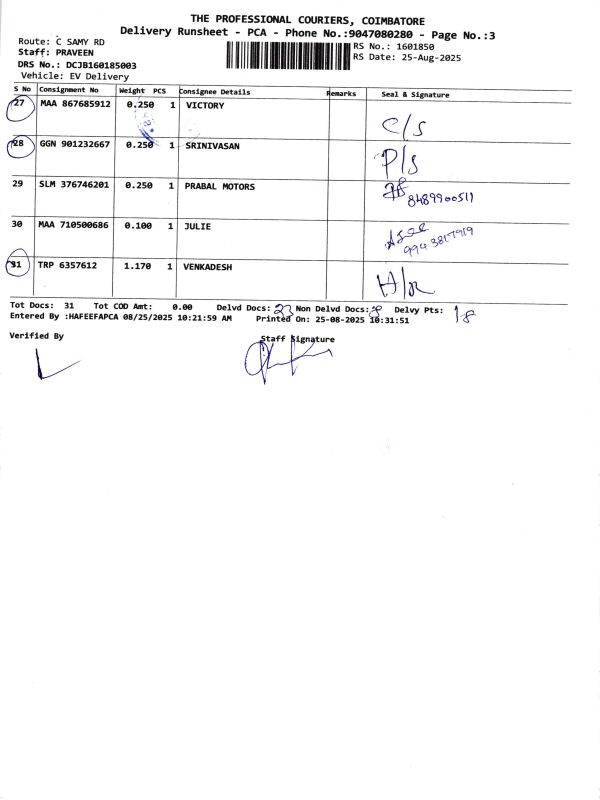 THE PROFESSIONAL COURIERS, COIMBATORE
Delivery Runsheet - PCA - Phone No.:9047080280 - Page No.:3
Route: C SAMY RD
Staff: PRAVEEN
DRS No.: DCJB160185003
Vehicle: EV Delivery
RS No.: 1601850
RS Date: 25-Aug-2025
S No Consignment No Weight PCS Consignee Details Remarks Seal & Signature
27 MAA 867685912 0.250 1 VICTORY C/S
28 GGN 901232667 0.250 1 SRINIVASAN P/S
29 SLM 376746201 0.250 1 PRABAL MOTORS
8489900511
30 MAA 710500686 0.100 1 JULIE
994 3817919
31 TRP 6357612 1.170 1 VENKADESH H/R
Tot Docs: 31 Tot COD Amt: 0.00 Delvd Docs: 23 Non Delvd Docs: 8 Delvy Pts: 18
Entered By :HAFEEFAPCA 08/25/2025 10:21:59 AM Printed On: 25-08-2025 10:31:51
Verified By
Staff Signature